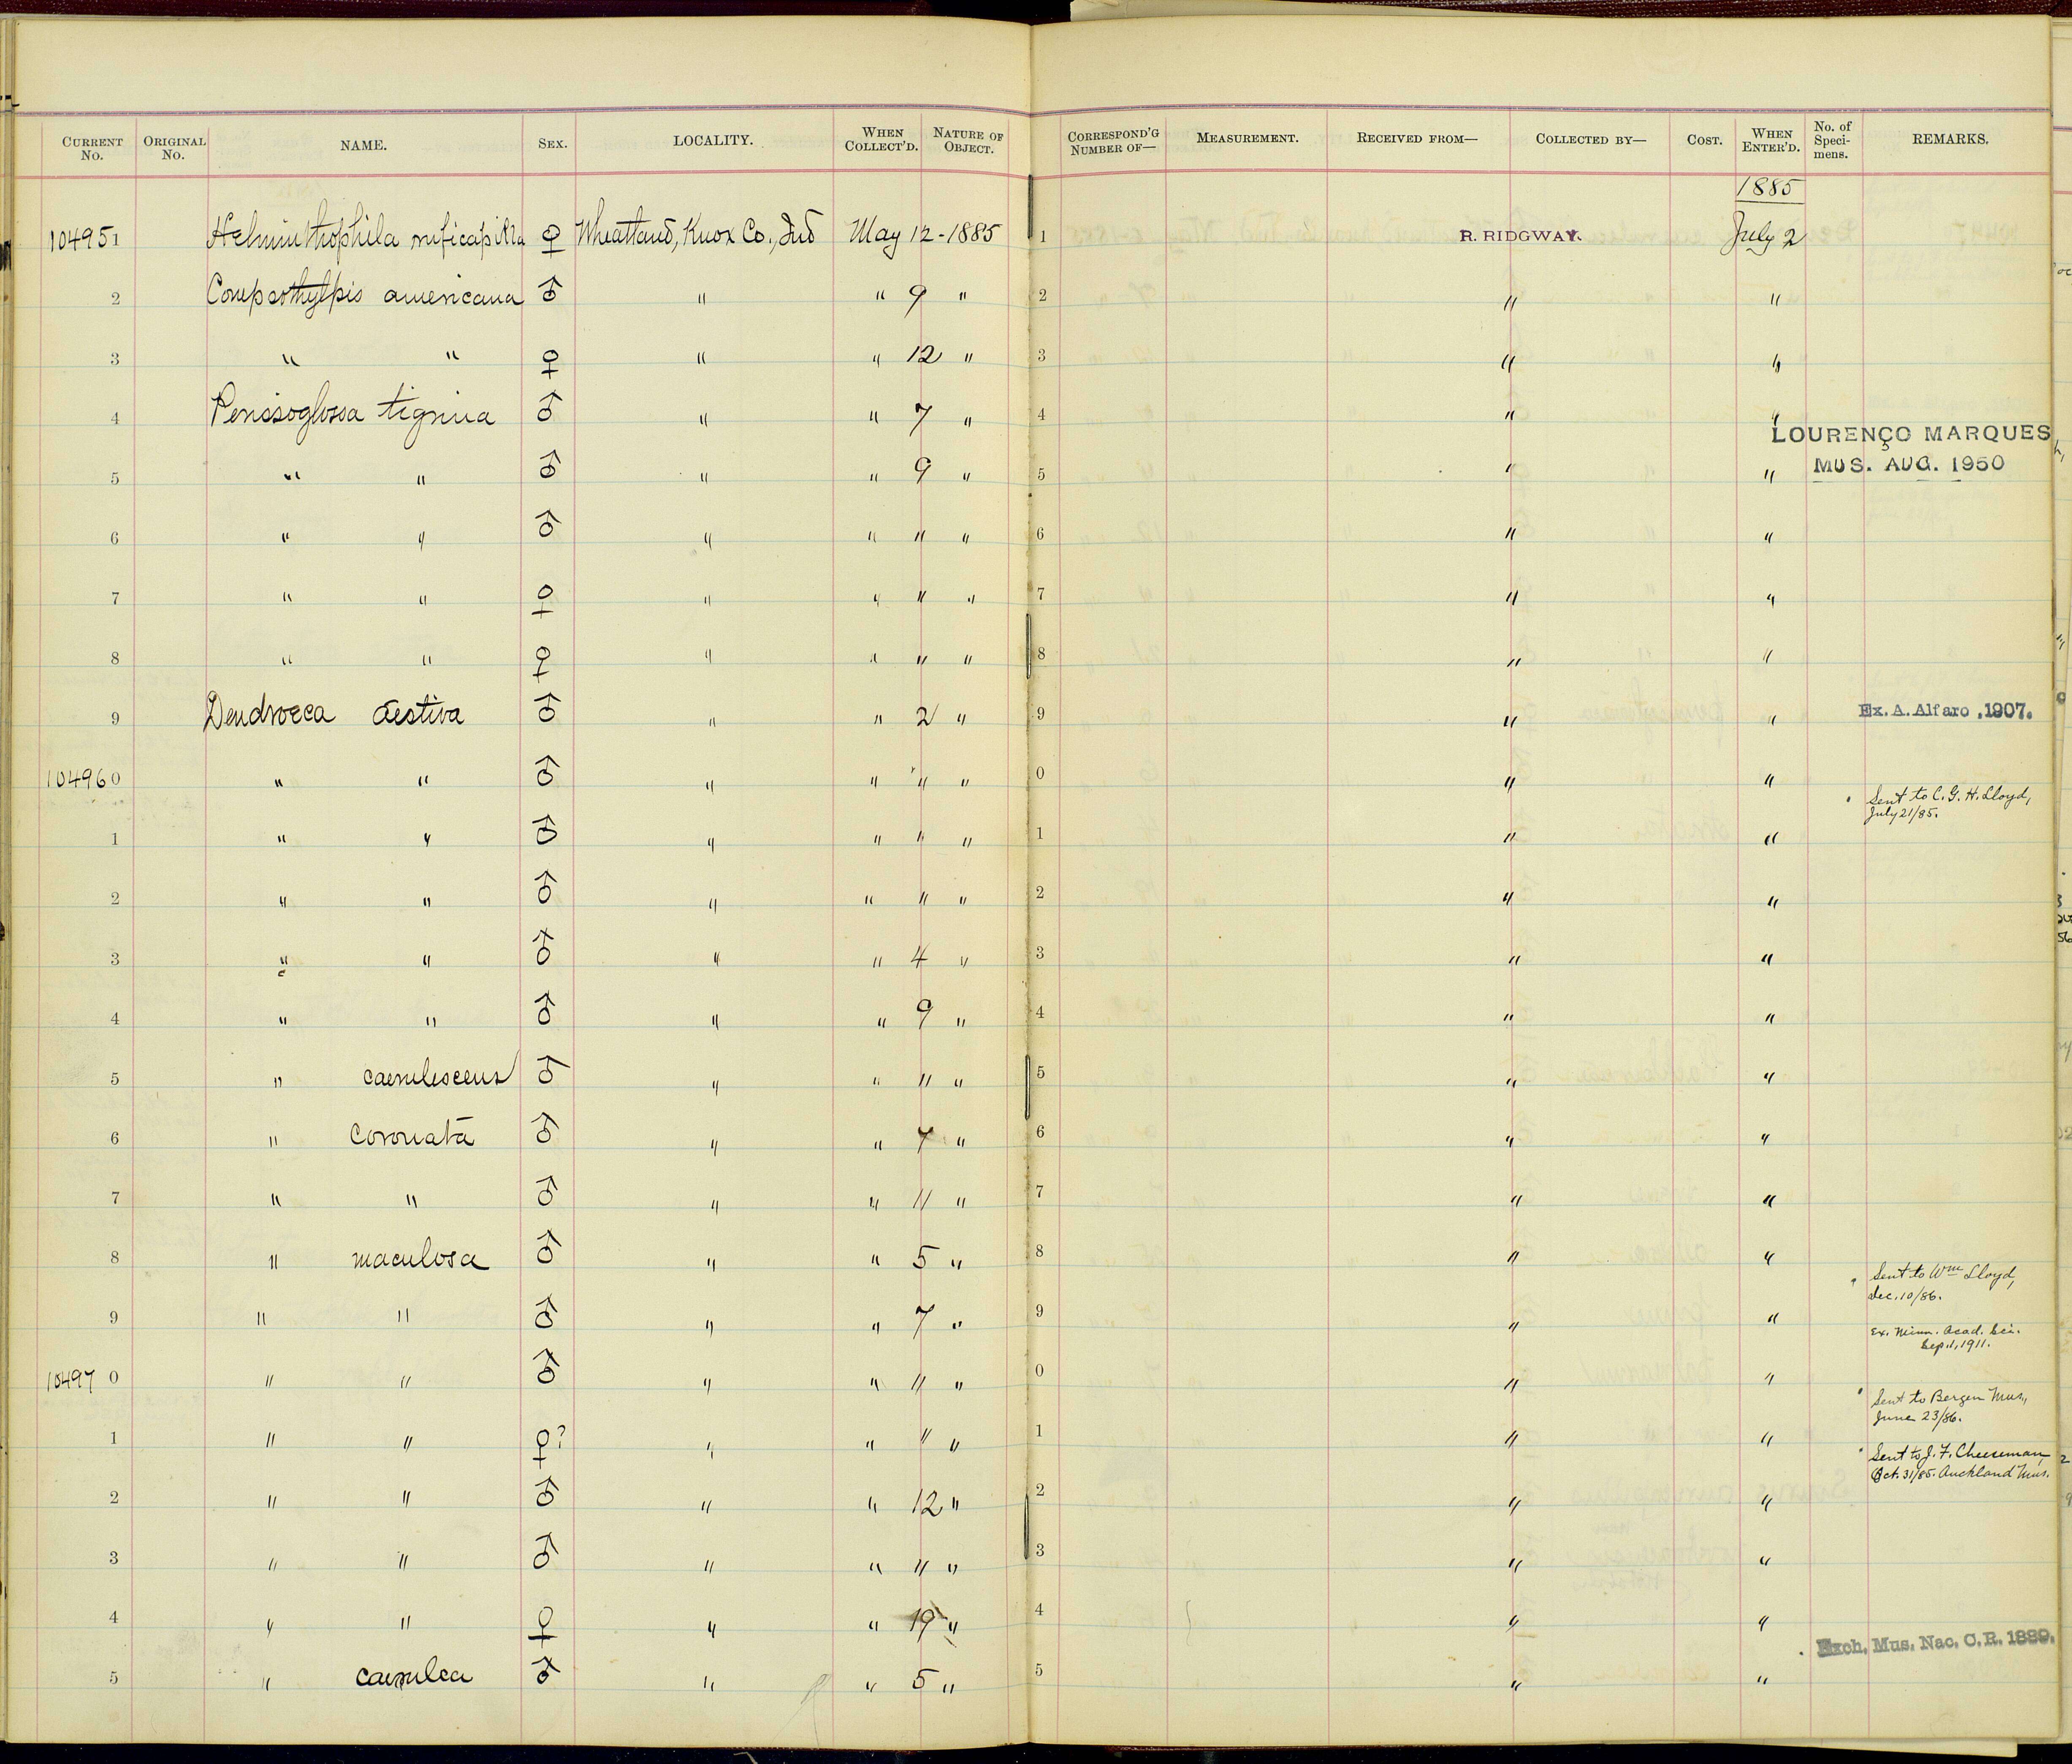 CURRENT No. ORIGINAL No. NAME. SEX. LOCALITY. WHEN COLLECT'D. NATURE OF OBJECT. CORRESPOND'G NUMBER OF— MEASUREMENT. RECEIVED FROM— COLLECTED BY— COST. WHEN ENTER'D. No. of Speci-mens. REMARKS.
1885
104951 Helminthophila ruficapilla ♀ Wheatland, Knox Co., Ind May 12 - 1885 1 R. RIDGWAY. July 2
2 Compsothylpis americana ♂ " " 9 " 2 " "
3 " " ♀ " " 12 " 3 " "
4 Perissoglossa tigrina ♂ " " 7 " 4 " "
LOURENÇO MARQUES
5 " " ♂ " " 9 " 5 " " MUS. AUG. 1950
6 " " ♂ " " " " 6 " "
7 " " ♀ " " " " 7 " "
8 " " ♀ " " " " 8 " "
9 Dendroeca aestiva ♂ " " 2 " 9 " " Ex. A. Alfaro, 1907.
104960 " " ♂ " " " " 0 " "
Sent to C. G. H. Lloyd,
July 21/85.
1 " " ♂ " " " " 1 " "
2 " " ♂ " " " " 2 " "
3 " " ♂ " " 4 " 3 " "
4 " " ♂ " " 9 " 4 " "
5 " caerulescens ♂ " " " " 5 " "
6 " coronata ♂ " " 7 " 6 " "
7 " " ♂ " " 11 " 7 " "
8 " maculosa ♂ " " 5 " 8 " "
Sent to Wm Lloyd,
Dec. 10/86.
9 " " ♂ " " 7 " 9 " "
Ex. Minn. Acad. Sci.
Sep. 1, 1911.
104970 " " ♂ " " " " 0 " "
Sent to Bergen Mus.,
June 23/86.
1 " " ♀? " " " " 1 " "
Sent to J. F. Cheeseman,
Oct. 31/85. Auckland Mus.
2 " " ♂ " " 12 " 2 " "
3 " " ♂ " " " " 3 " "
4 " " ♀ " " 19 " 4 " "
Exch. Mus. Nac. C.R. 1889.
5 " caerulea ♂ " " 5 " 5 " "